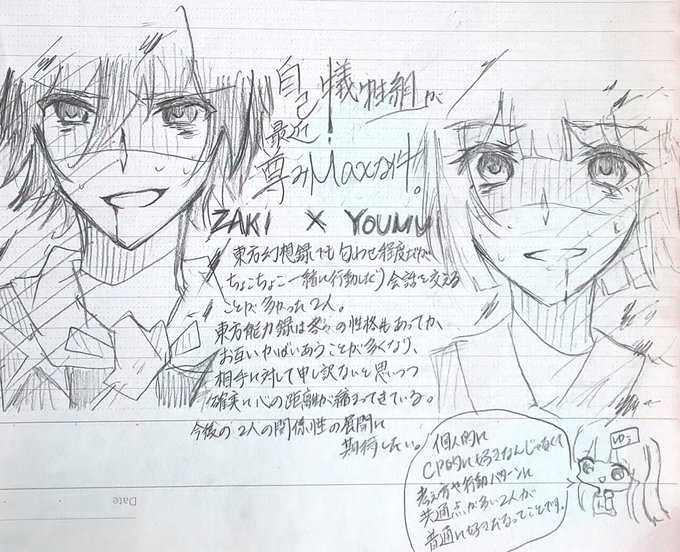 自己犠牲組が
最近
尊みMaxな件。
ZAKI × YOUMU
東方幻想録でも匂わせ程度だが
ちょこちょこ一緒に行動したり会話を交える
ことが多かった2人。
東方能力録は各々の性格もあってか、
お互いかばいあうことが多くなり、
相手に対して申し訳ないと思いつつ
確実に心の距離が縮まってきている。
今後の2人の関係性の展開に
期待したい。
個人的に
CP的に好きなんじゃなくて
考え方や行動パターンに
共通点が多い2人が
普通に好きだなってことです。
ゆう
Date